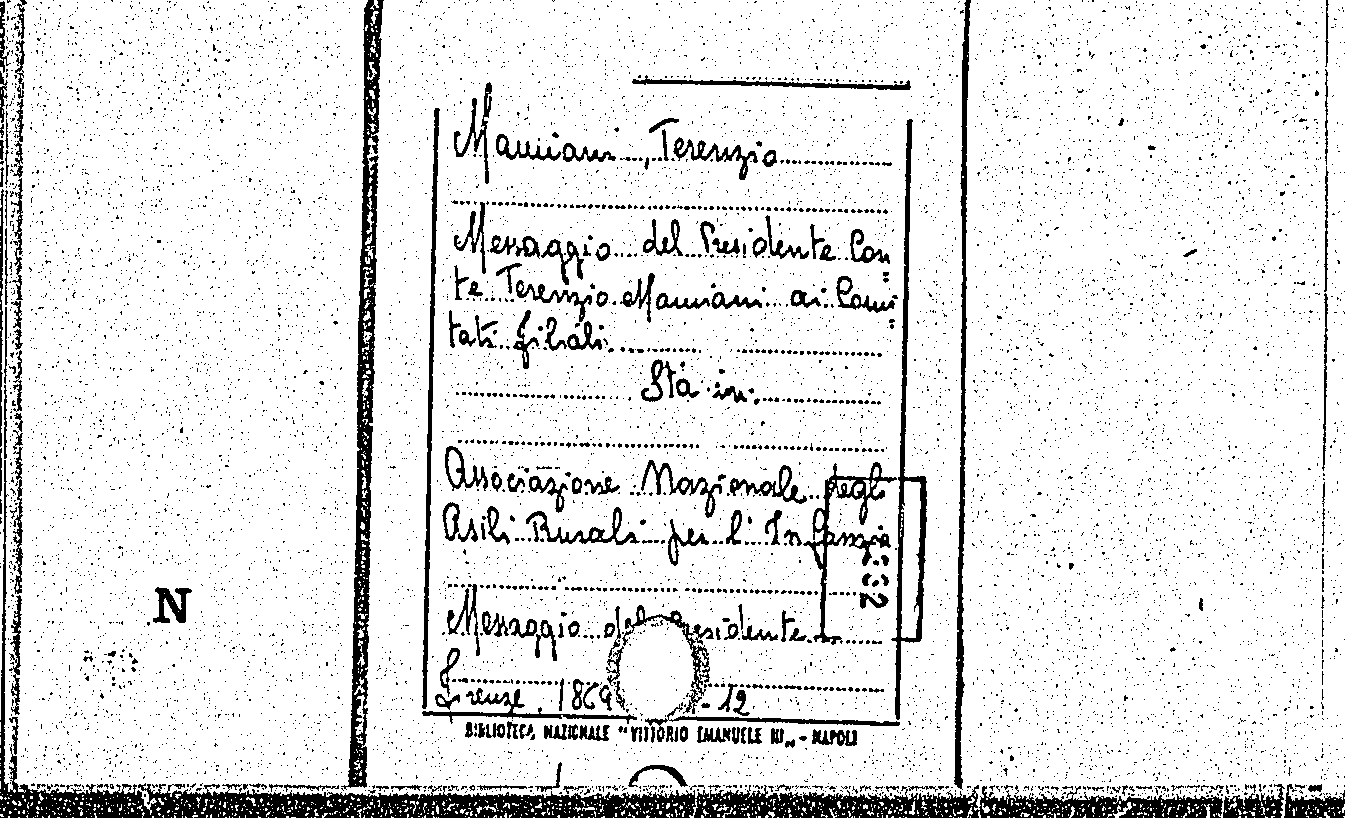 Mamiani, Terenzio
Messaggio del Presidente Con
te Terenzio Mamiani ai Comi
tati filiali.
Sta in:
Associazione Nazionale degli
Asili Rurali per l'Infanzia
Messaggio del Presidente
Firenze, 1869 - 12
BIBLIOTECA NAZIONALE "VITTORIO EMANUELE III" - NAPOLI
N